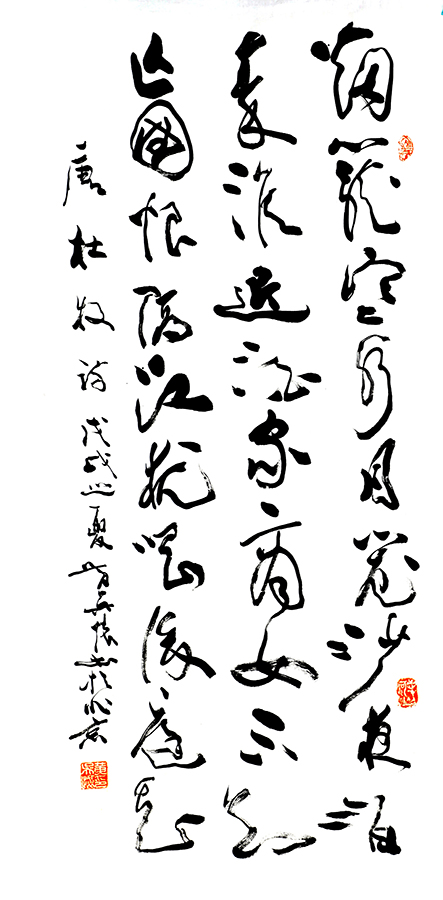 烟籠寒水月籠沙夜泊
秦淮近酒家商女不知
亡國恨隔江犹唱後庭花
唐杜牧诗戊戌之夏懷书於北京